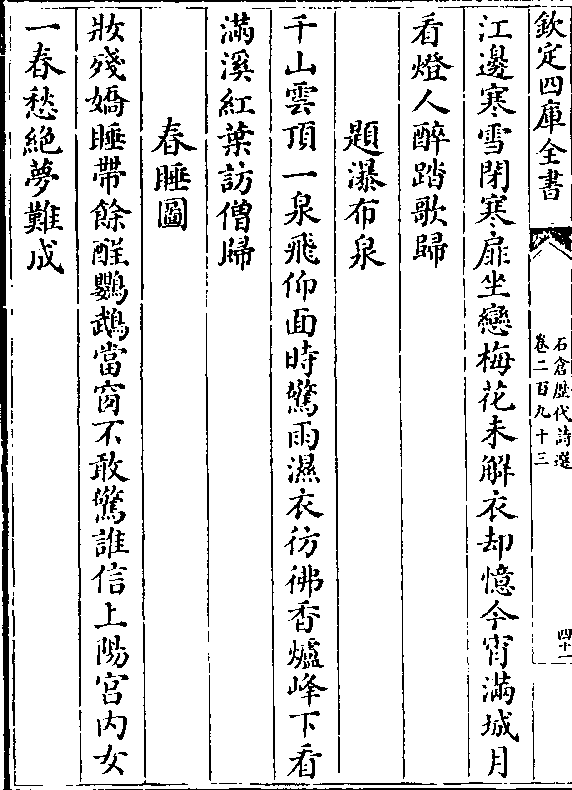 欽定四庫全書
石倉歴代詩選
卷二百九十三
四十一
江邊寒雪閉寒扉坐戀梅花未解衣却憶今宵滿城月
看燈人醉踏歌歸
題瀑布泉
千山雲頂一泉飛仰面時驚雨濕衣彷彿香爐峰下看
滿溪紅葉訪僧歸
春睡圖
妝殘嬌睡帶餘酲鸚鵡當窗不敢驚誰信上陽宮内女
一春愁絶夢難成